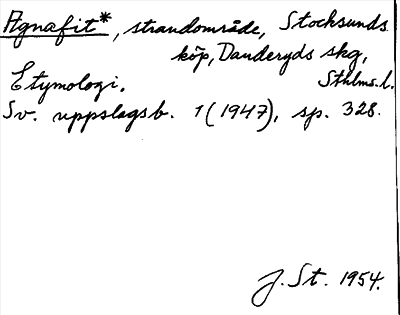 Agnafit*, strandområde, Stocksunds
köp, Danderyds skg,
Etymologi. Sthlms. l.
Sv. uppslagsb. 1 (1947), sp. 328.
J. St. 1954.